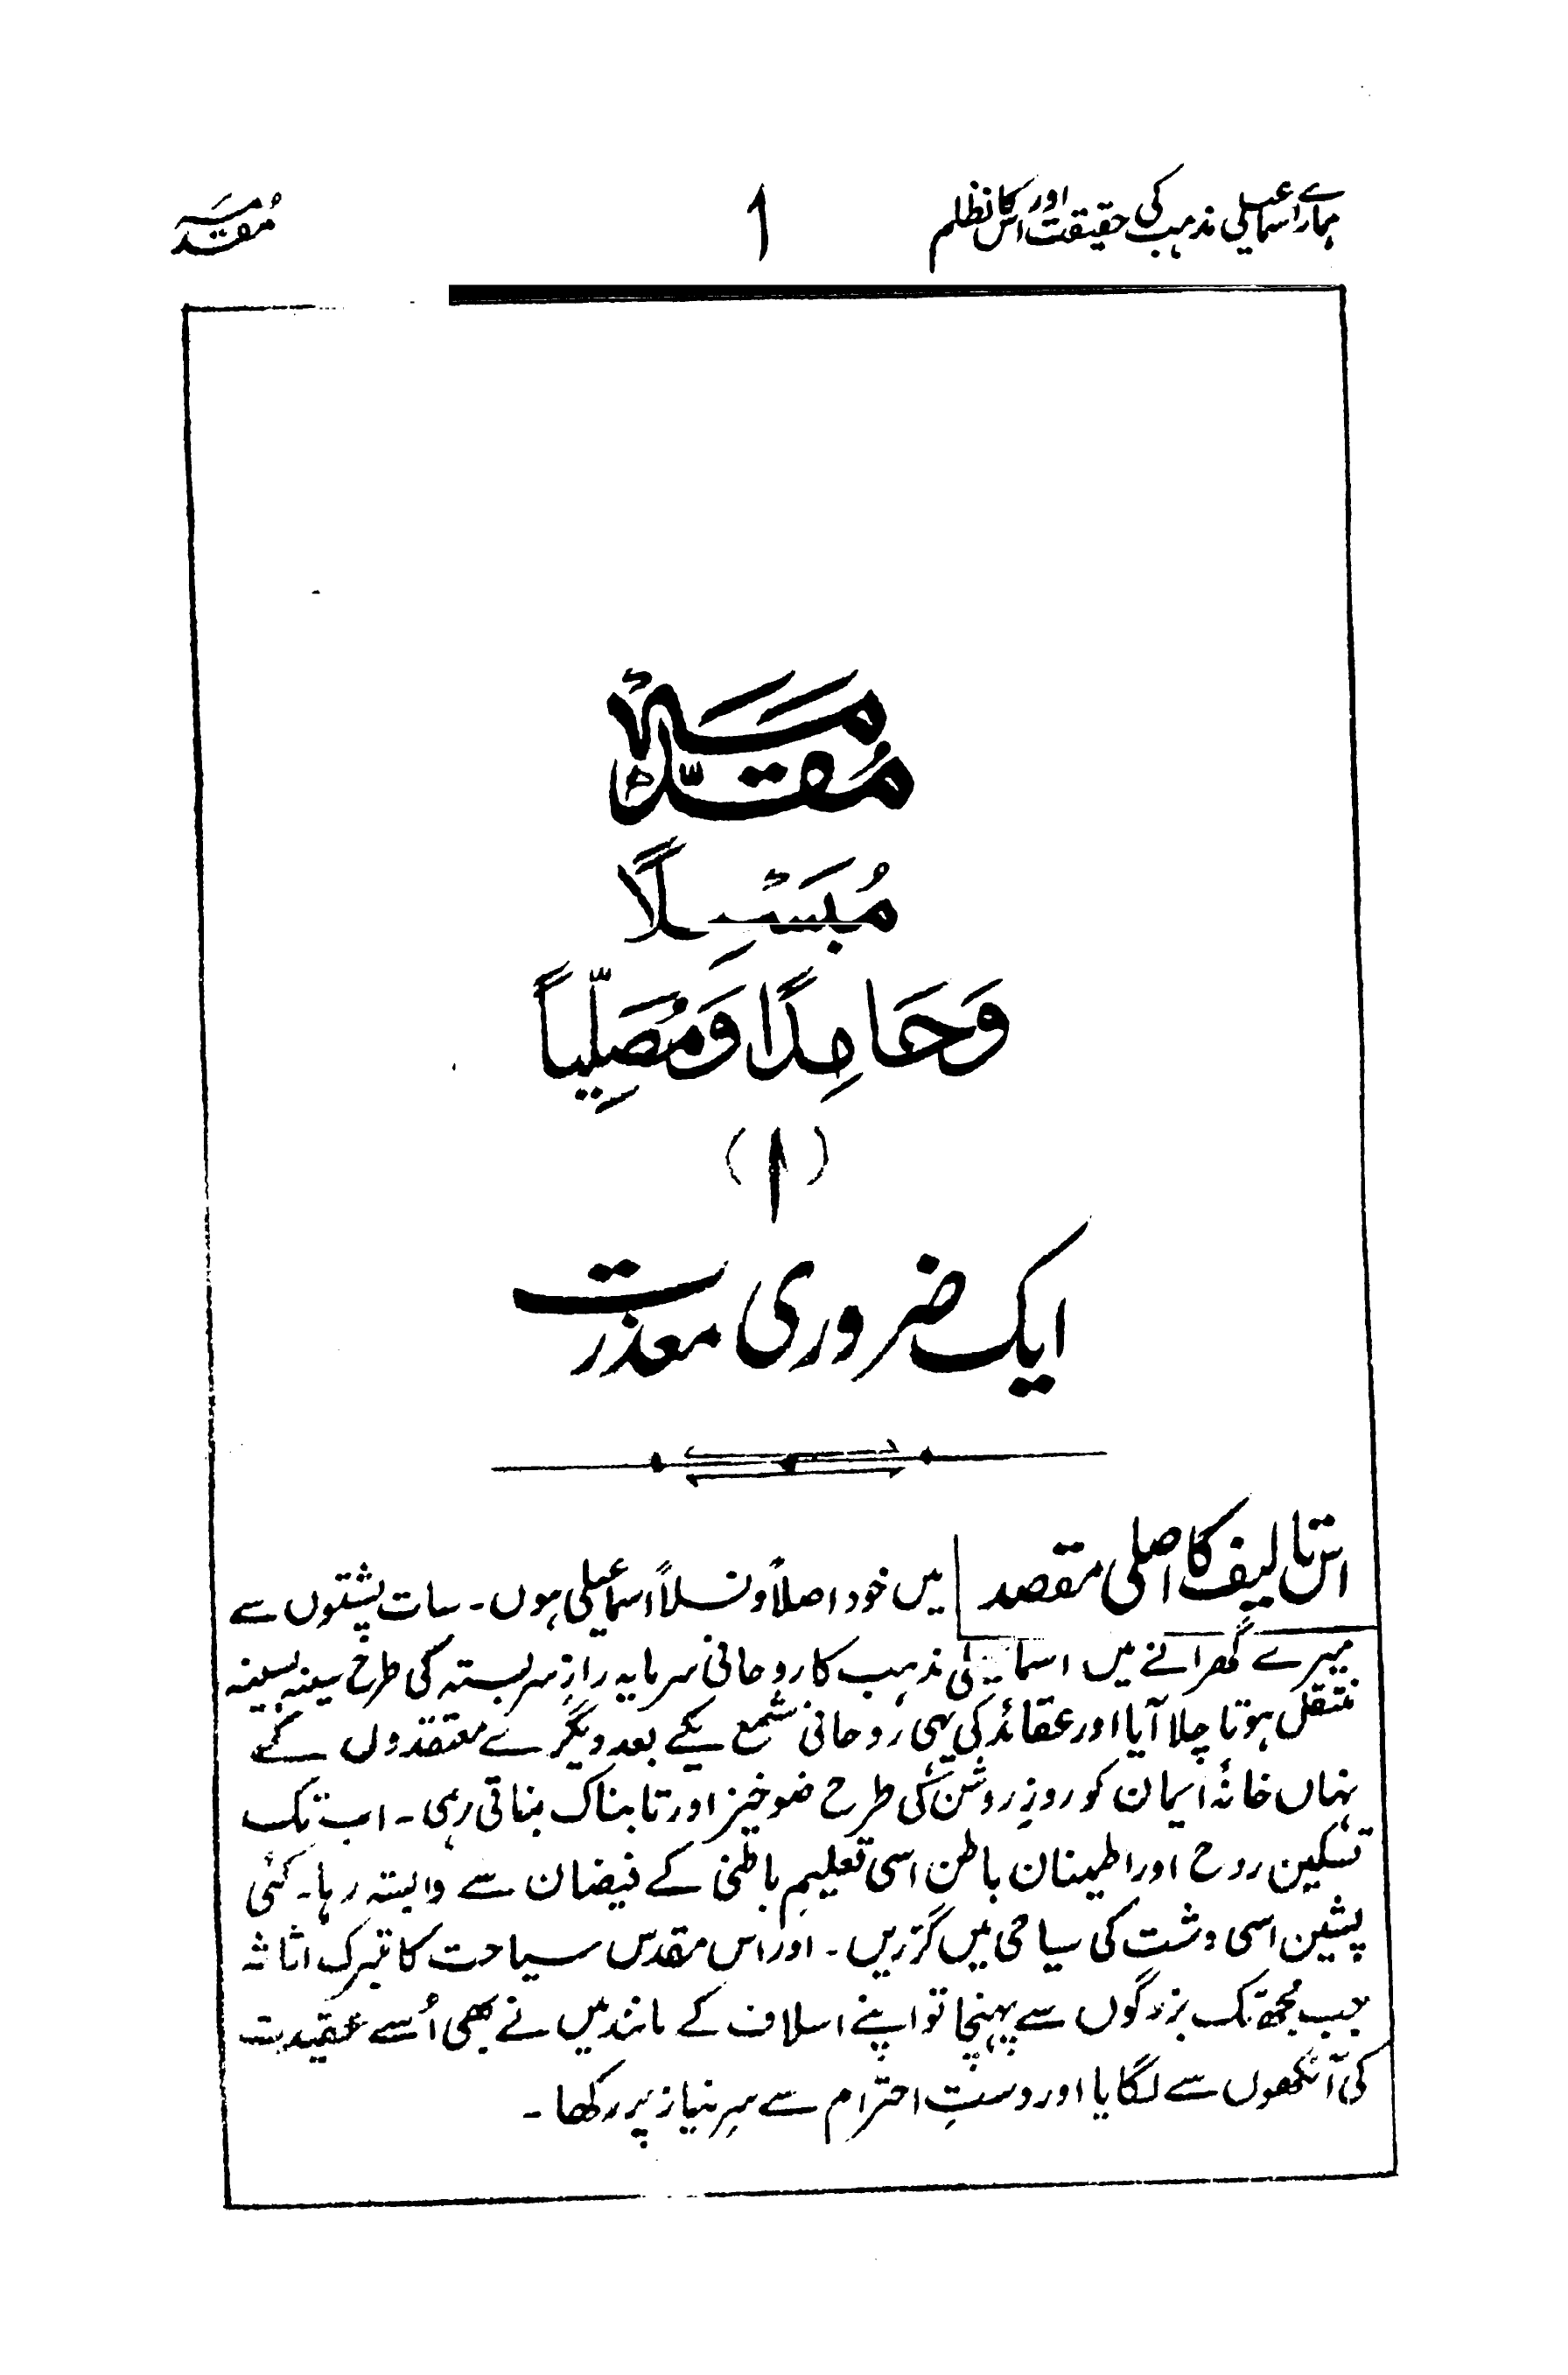 ہمارے اسماعیلی مذہب کی حقیقت اور اس کا نظام
۱
مُقدمہ
مُقَدَّمَہْ
مُبَسْمِلًا
وَحَامِدًا وَمُصَلِّیاً
(۱)
ایک ضروری معذرت
اس تالیف کا اصلی مقصد
میں خود اصلاً و نسلاً اسماعیلی ہوں۔ سات پشتوں سے
میرے گھرانے میں اسماعیلی مذہب کا روحانی سرمایہ رازِ سربستہ کی طرح سینہ بسینہ
منتقل ہوتا چلا آیا اور عقائد کی یہی رُوحانی شمع یکے بعد دیگرے معتقدوں کے
نہاں خانۂ ایمان کو روزِ روشن کی طرح ضوخیز اور تابناک بناتی رہی۔ اب تک
تسکین روح اور اطمینان باطن اسی تعلیمِ باطنی کے فیضان سے وابستہ رہا۔ کئی
پشتیں اسی دشت کی سیاحی میں گزریں۔ اور اس مقدس سیاحت کا تبرک اثاثہ
جب مجھ تک بزرگوں سے پہنچا تو اپنے اسلاف کے مانند میں نے بھی اُسے عقیدت
کی آنکھوں سے لگایا اور دستِ احترام سے سرِ نیاز پر رکھا۔